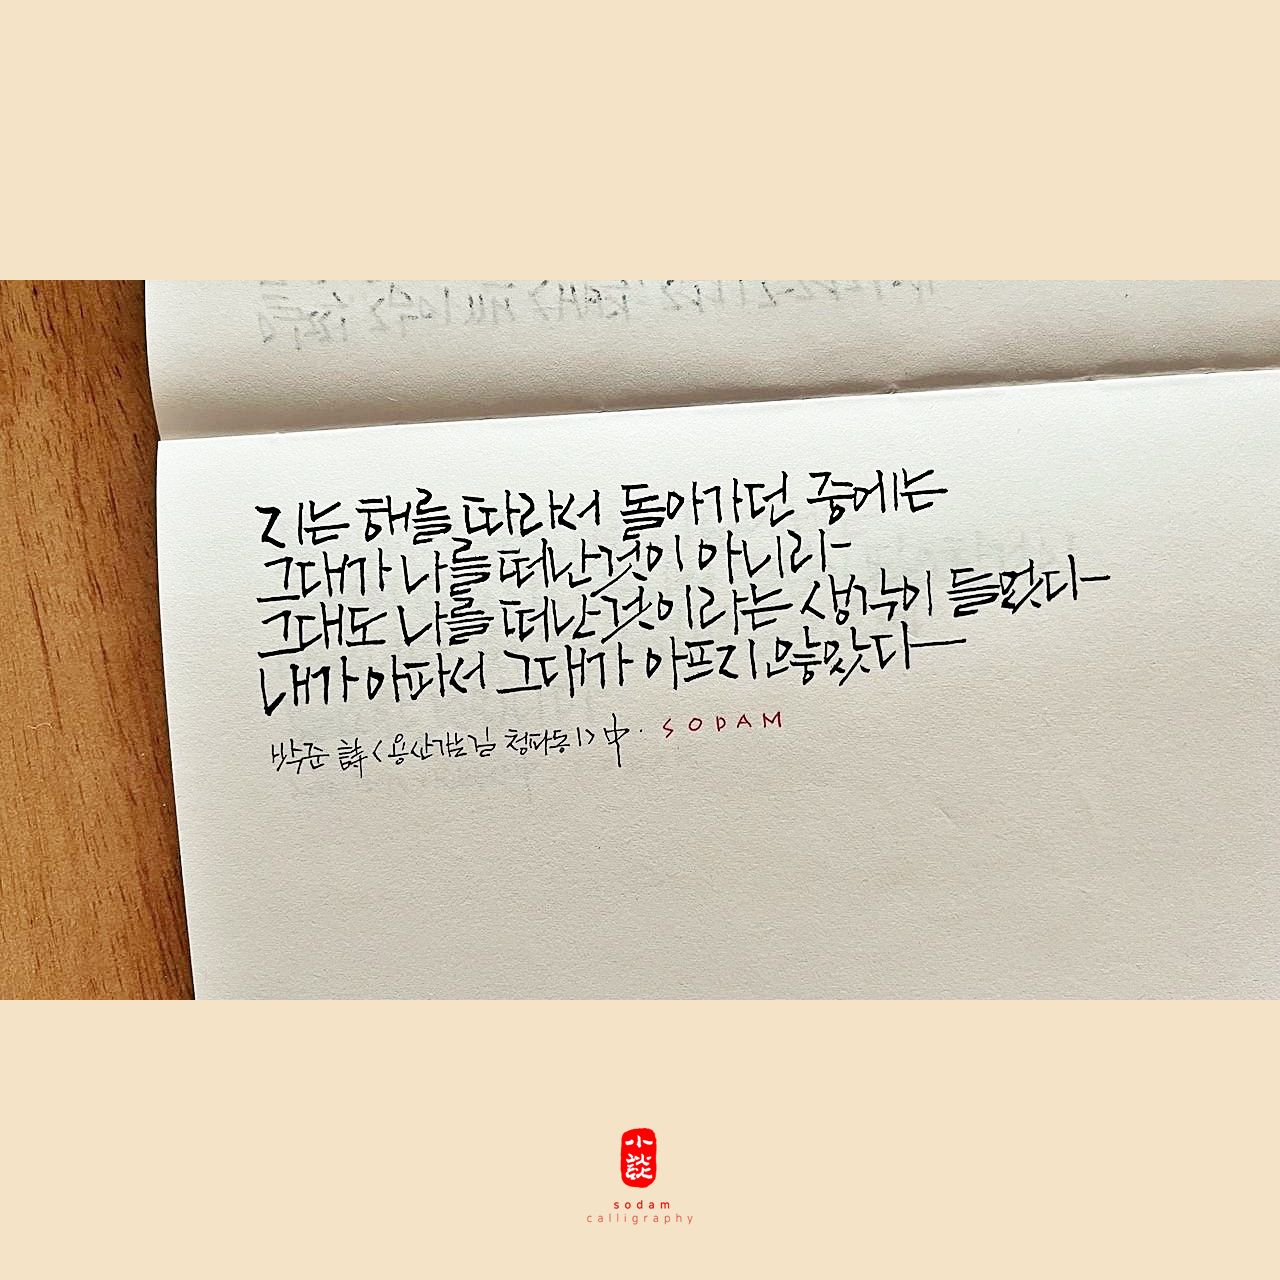 지는 해를 따라서 돌아가던 중에는
그대가 나를 떠난것이 아니라
그대도 나를 떠난것이라는 생각이 들었다
내가 아파서 그대가 아프지 않았다
박준 詩 <용산가는길 청파동1> 中 . SODAM
小談
sodam
calligraphy